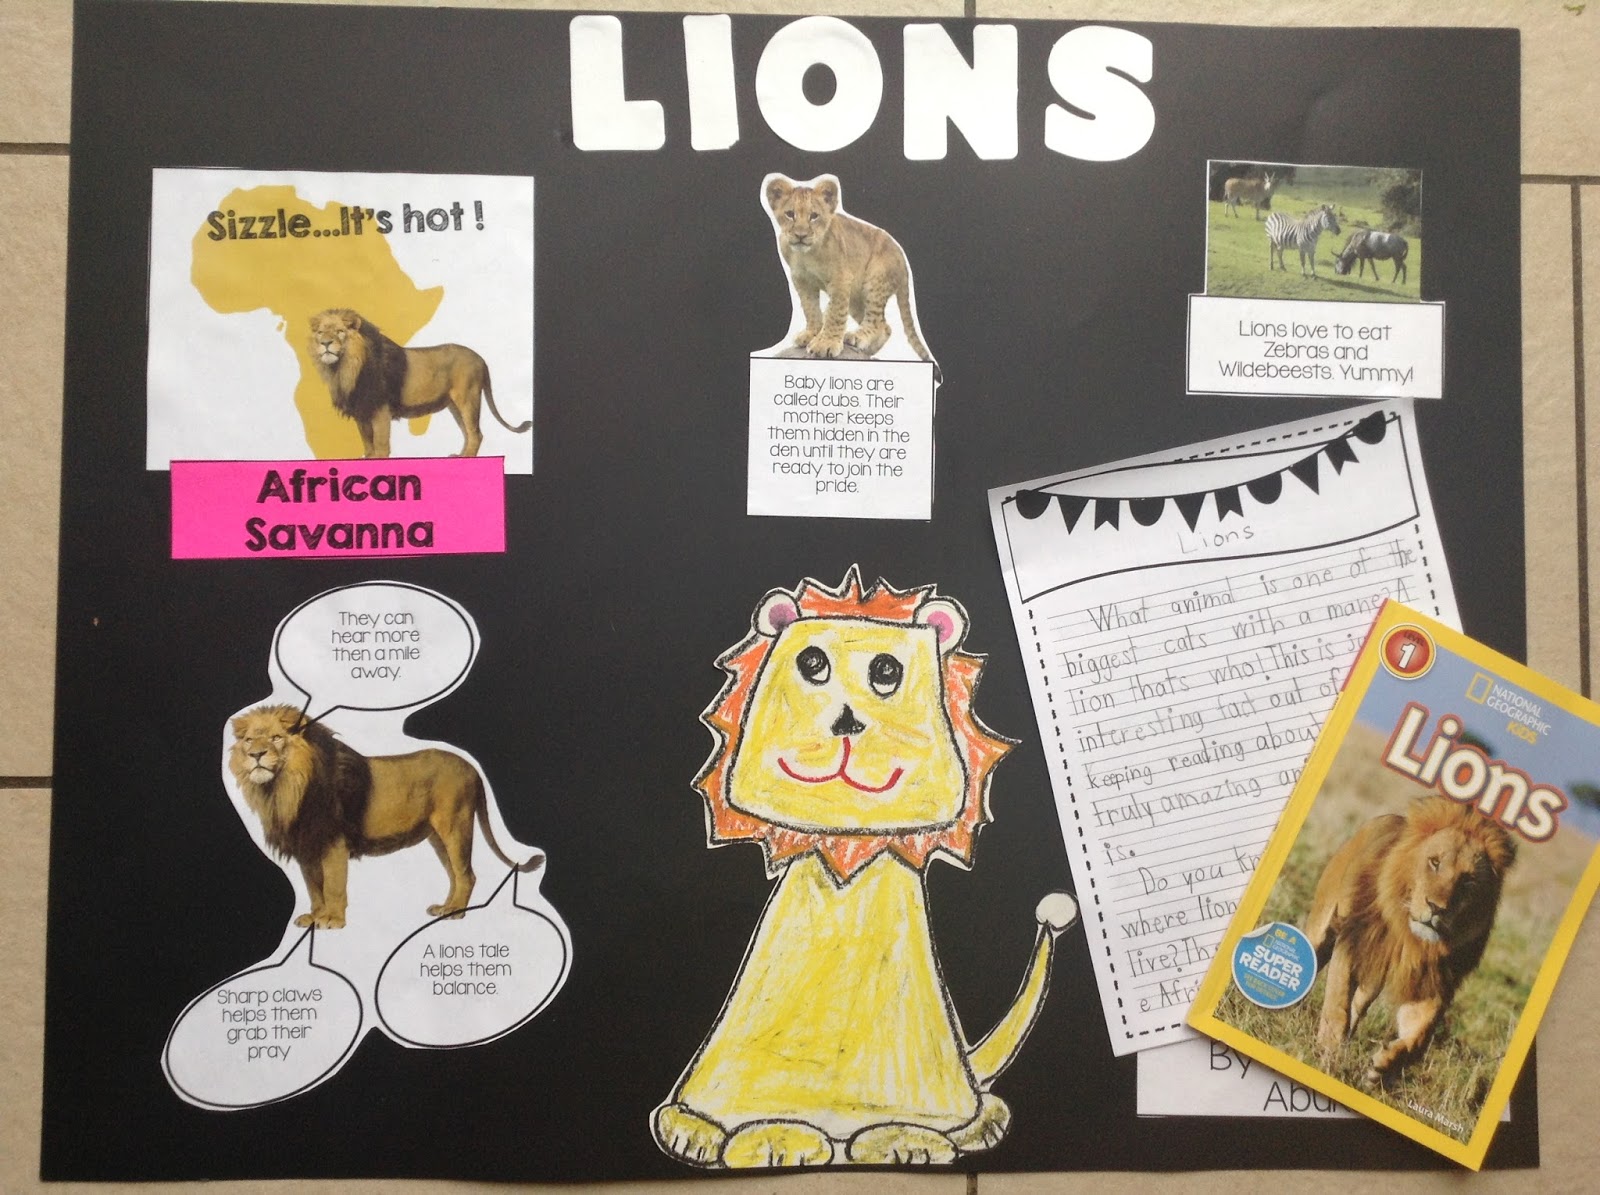 LIONS
Sizzle...It's hot !
African
Savanna
Baby lions are
called cubs. Their
mother keeps
them hidden in the
den until they are
ready to join the
pride.
Lions love to eat
Zebras and
Wildebeests. Yummy!
They can
hear more
then a mile
away.
A lions tale
helps them
balance.
Sharp claws
helps them
grab their
pray
Lions
What animal is one of the
biggest cats with a mane? A
lion thats who! This is
interesting fact out of
keeping reading about
truly amazing
is.
Do you
where
live?
By
LEVEL
1
NATIONAL
GEOGRAPHIC
KiDS
Lions
BE A
NATIONAL
GEOGRAPHIC
SUPER
READER
Laura Marsh